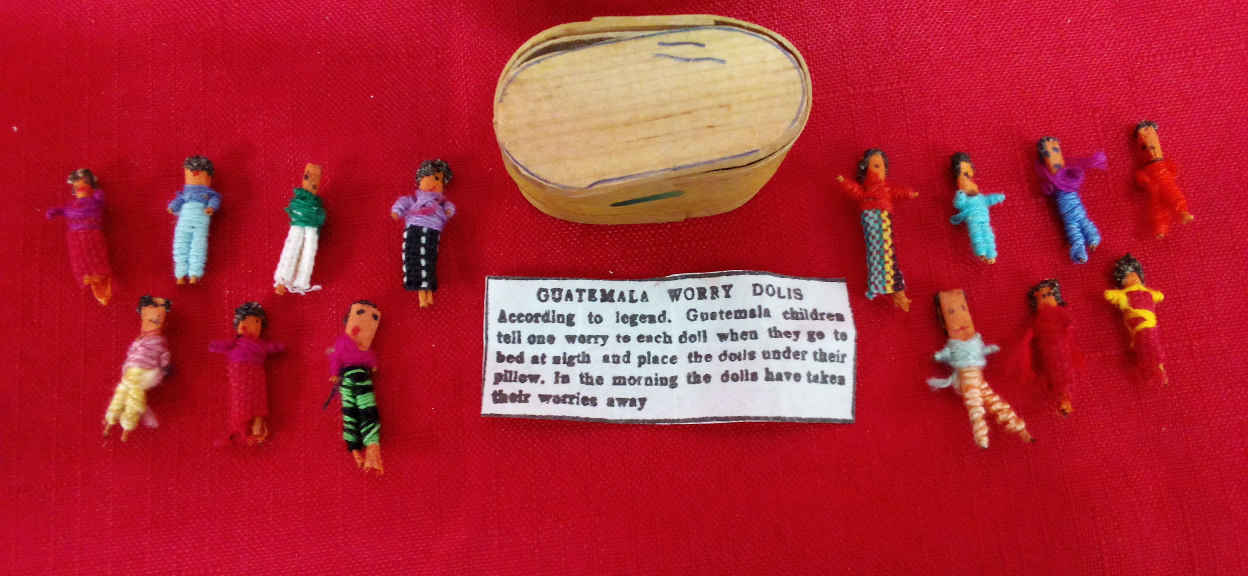 GUATEMALA WORRY DOLIS
According to legend. Guetemala children
tell one worry to each doll when they go to
bed at nigth and place the dolls under their
pillow. In the morning the dolls have taken
their worries away